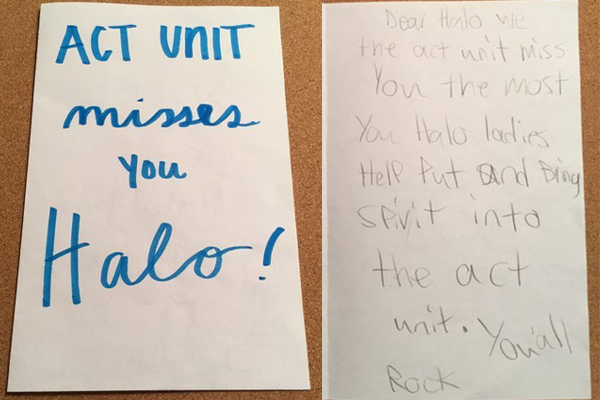 ACT UNIT
misses
you
Halo!
Dear Halo we
the act unit miss
You the most
You Halo ladies
Help Put and Bring
Spirit into
the act
unit. You'all
Rock